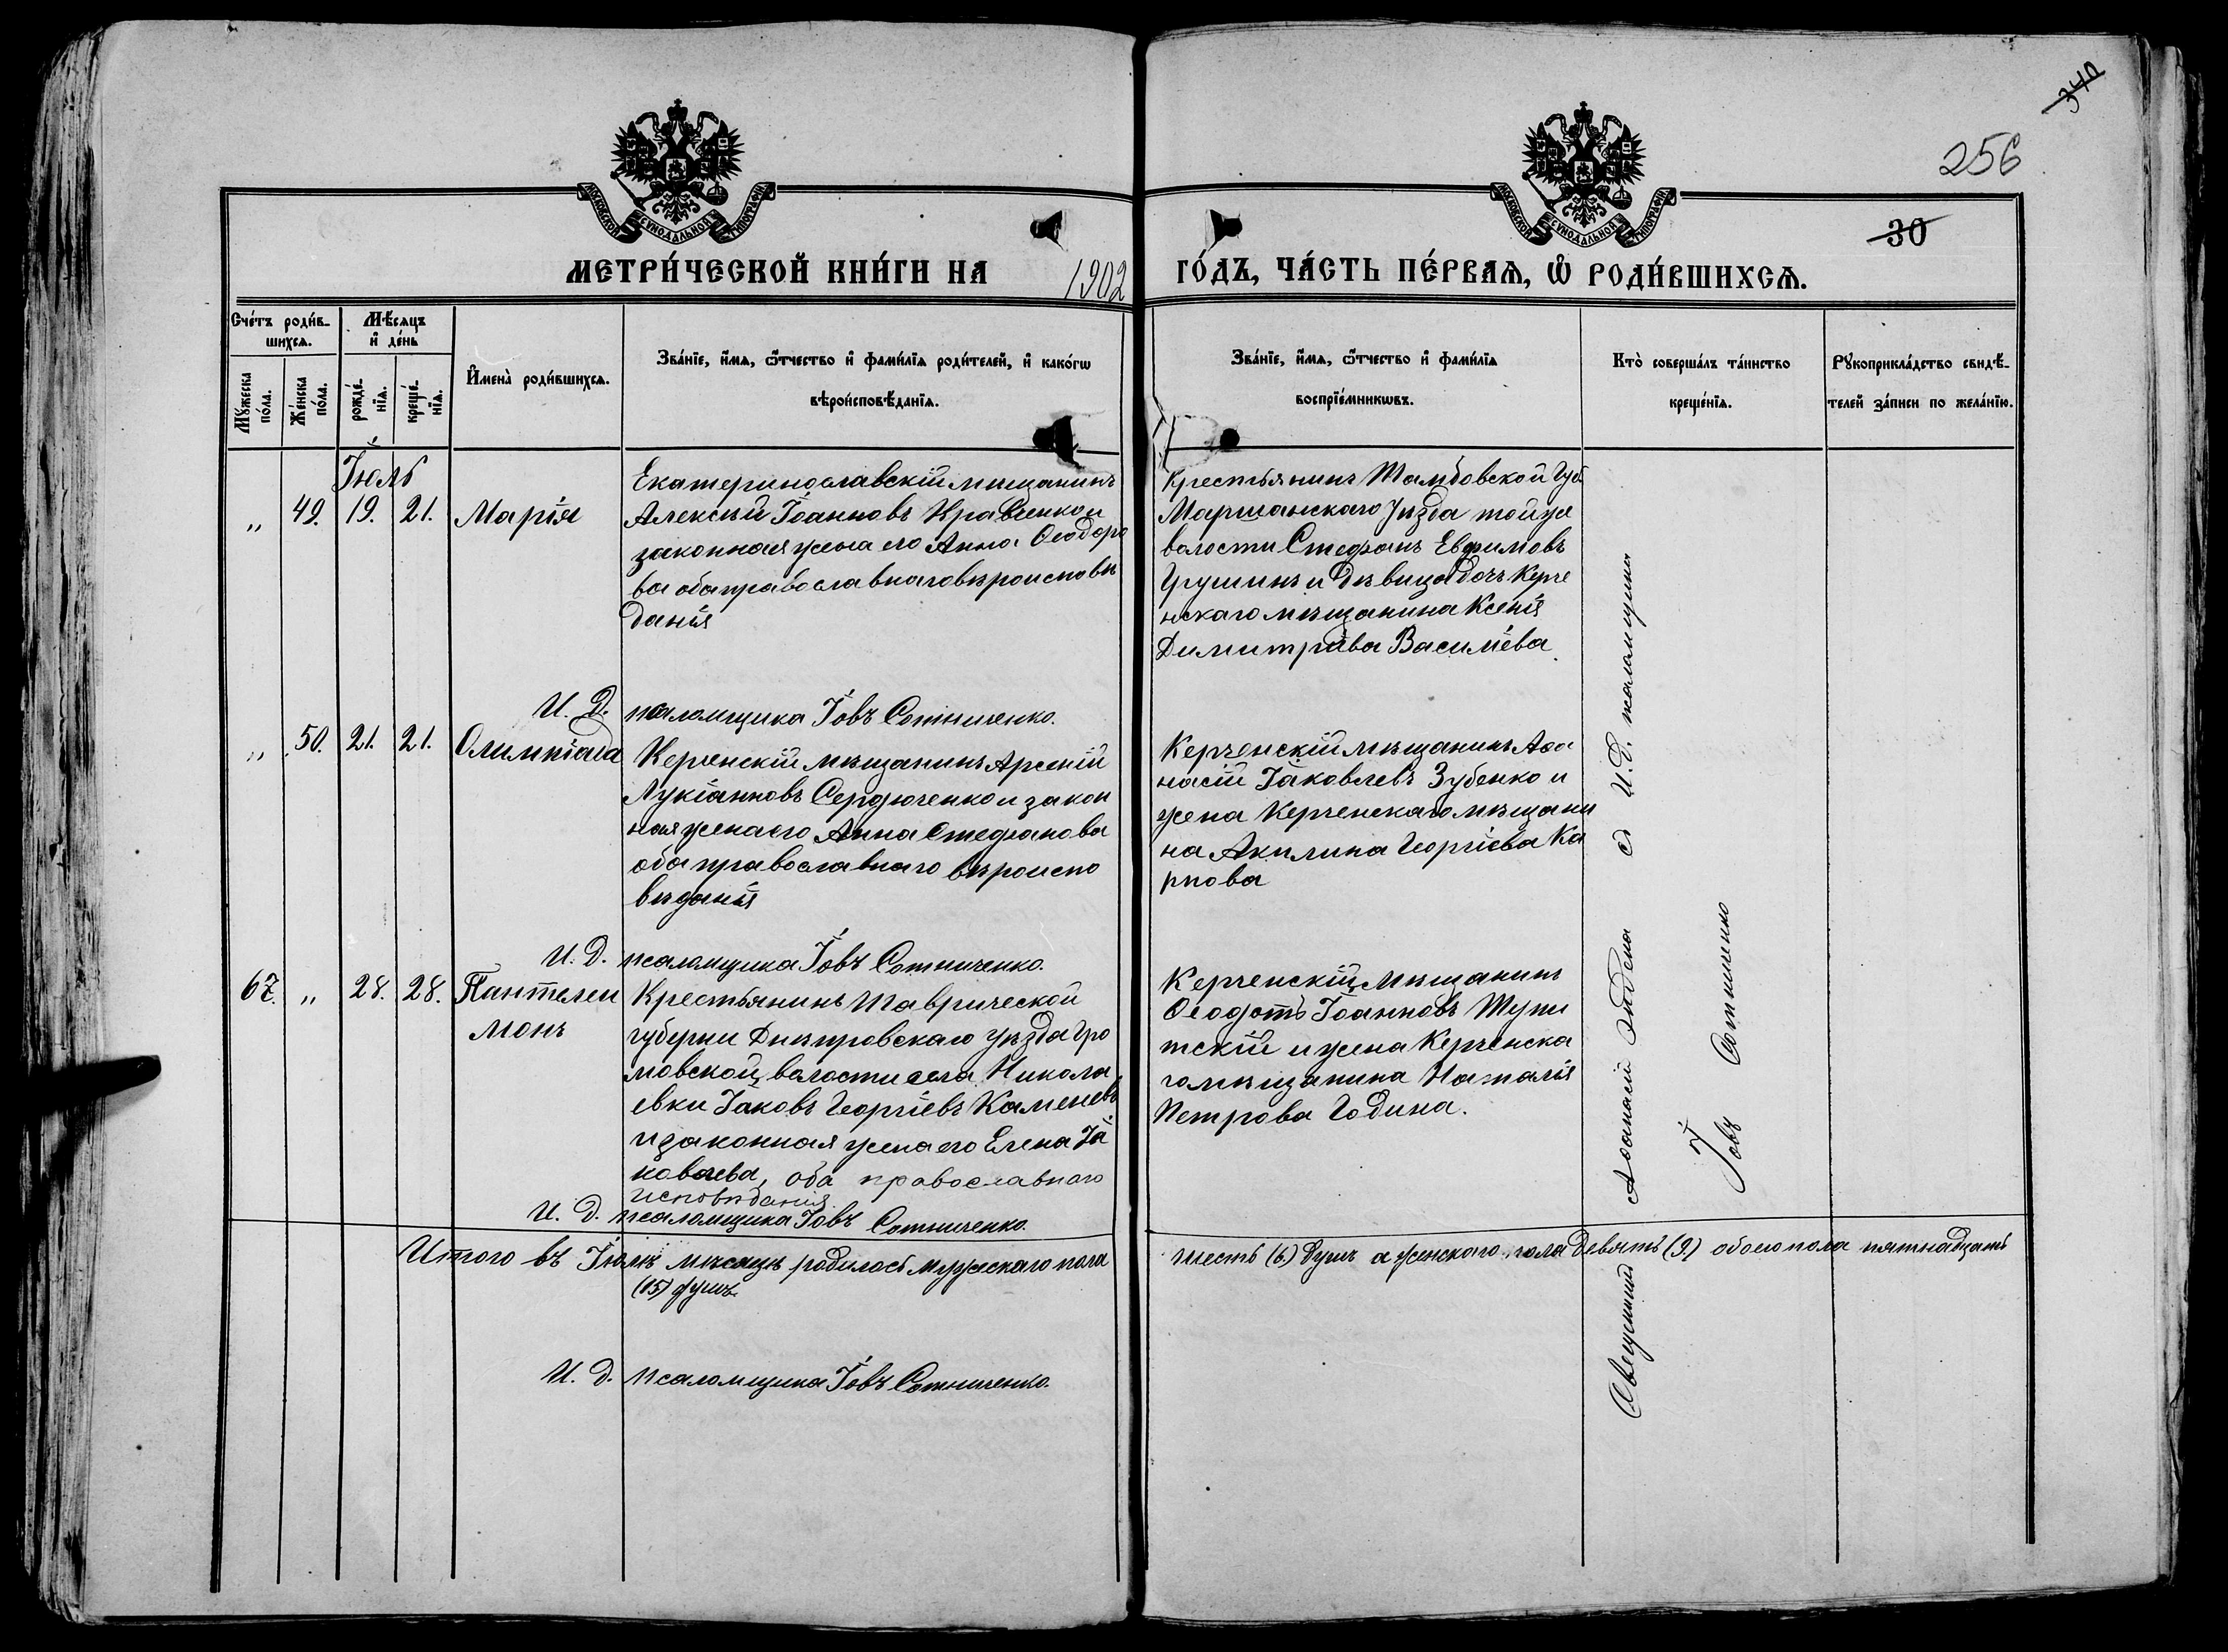 340
256
30
МОСКОВСКОЙ СѴНОДАЛЬНОЙ ТИПОГРАФІИ
МОСКОВСКОЙ СѴНОДАЛЬНОЙ ТИПОГРАФІИ
МЕТРИ́ЧЕСКОЙ КНИ́ГИ НА 1902 ГО́ДЪ, ЧА́СТЬ ПЕ́РВАѦ, Ѡ҆ РОДИ́ВШИХСѦ.
Сче́тъ роди́в-
шихсѧ.
Мꙋ́жеска
по́ла.
Же́нска
по́ла.
Мѣ́сѧцъ
и҆ де́нь
рожде́-
нїѧ.
креще́-
нїѧ.
И҆мена̀ роди́вшихсѧ.
Зва́нїе, и҆́мѧ, ѻ҆́тчество и҆ фами́лїѧ роди́телей, и҆ како́гѡ
вѣроисповѣ́данїѧ.
Зва́нїе, и҆́мѧ, ѻ҆́тчество и҆ фами́лїѧ
воспрїе́мникѡвъ.
Кто̀ соверша́лъ та́инство
креще́нїѧ.
Рꙋкоприкла́дство свидѣ́-
телей за́писи по жела́нїю.
Іюль
„ 49. 19. 21. Марія
Екатеринославскій мѣщанинъ
Алексѣй Іоанновъ Кравченко и
законная жена его Анна Ѳеодоро
ва оба православнаго вѣроисповѣ
данія
Крестьянинъ Тамбовской Губ
Маршанскаго Уѣзда той же
волости Стефанъ Евфимовъ
Грушинъ и дѣвица дочь Керче
нскаго мѣщанина Ксенія
Димитріева Василіева.
И. Д. псаломщика Іовъ Сотниченко.
„ 50. 21. 21. Олимпіада
Керченскій мѣщанинъ Арсеній
Лукіанновъ Сердюченко и закон
ная жена его Анна Стефанова
оба православнаго вѣроиспо
вѣданія
Керченскій мѣщанинъ Аѳа
насій Іаковлевъ Зубенко и
жена Керченскаго мѣщани
на Акилина Георгіева Ка
рпова
И. Д. псаломщика Іовъ Сотниченко.
67. „ 28. 28. Пантелеи
монъ
Крестьянинъ Таврической
губерни Днѣпровскаго уѣзда Гро
мовской, волости села Никола
евки Іаковъ Георгіевъ Каменевъ
и законная жена его Елена Іа
ковлева, оба православнаго
исповѣданія
Керченскій, мѣщанинъ
Ѳеодотъ Іоанновъ Тупи
тскій и жена Керченска
го мѣщанина Наталія
Петрова Година.
И. д. псаломщика Іовъ Сотниченко.
Священникъ Аѳанасій с И. Д. псаломщика
Іовъ Сотниченко
Итого въ Іюлѣ мѣсяцѣ родилось мужескаго пола шесть (6.) душъ а женскаго пола девять (9.) обоего пола пятнадцать
(15) душъ.
И. д. псаломщика Іовъ Сотниченко.